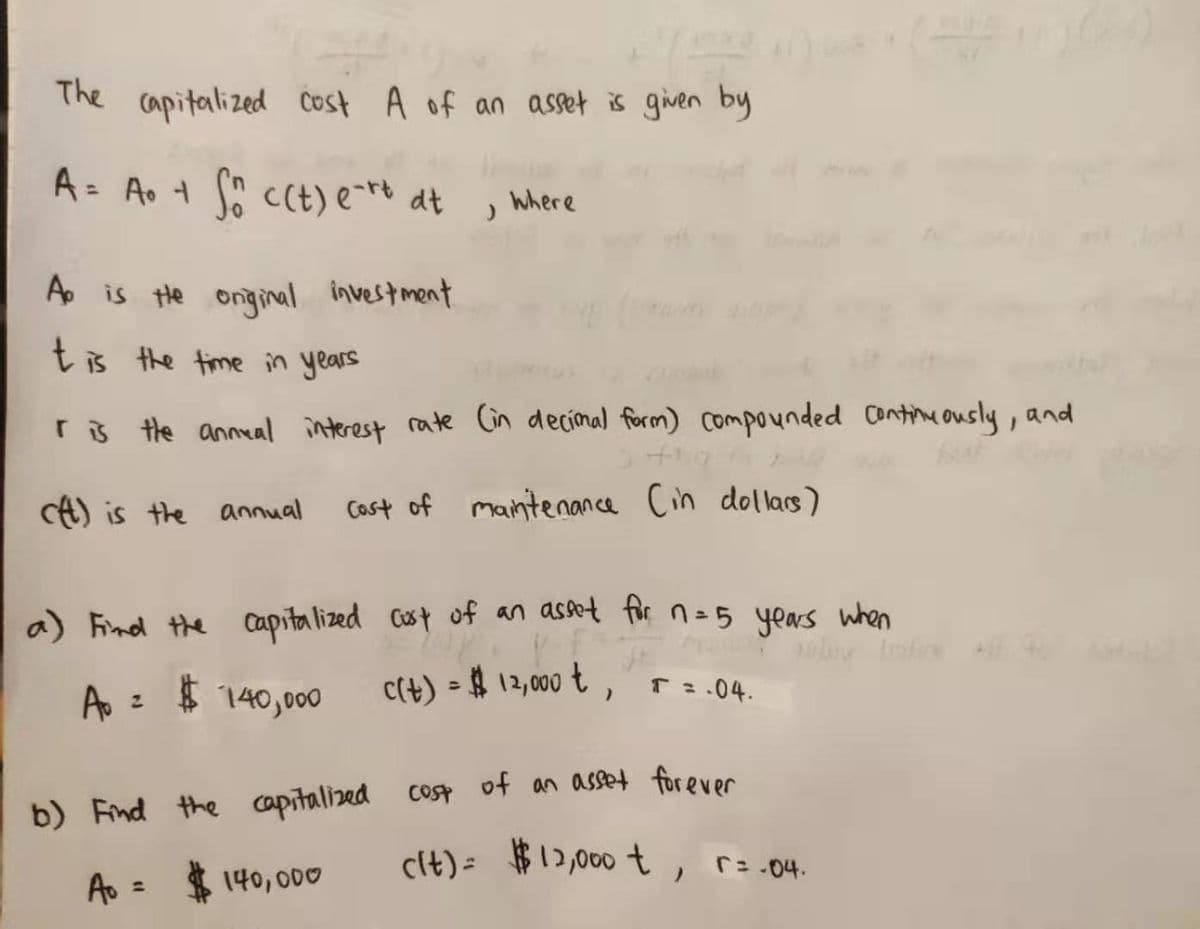 The capitalized cost A of an asset is given by
A = A₀ + ∫₀ⁿ c(t) e^-rt dt , where
A₀ is the original investment
t is the time in years
r is the annual interest rate (in decimal form) compounded continuously, and
c(t) is the annual cost of maintenance (in dollars)
a) Find the capitalized cost of an asset for n = 5 years when
A₀ = $ 140,000 c(t) = $ 12,000 t , r = .04.
b) Find the capitalized cost of an asset forever
A₀ = $ 140,000 c(t) = $ 12,000 t , r = .04.